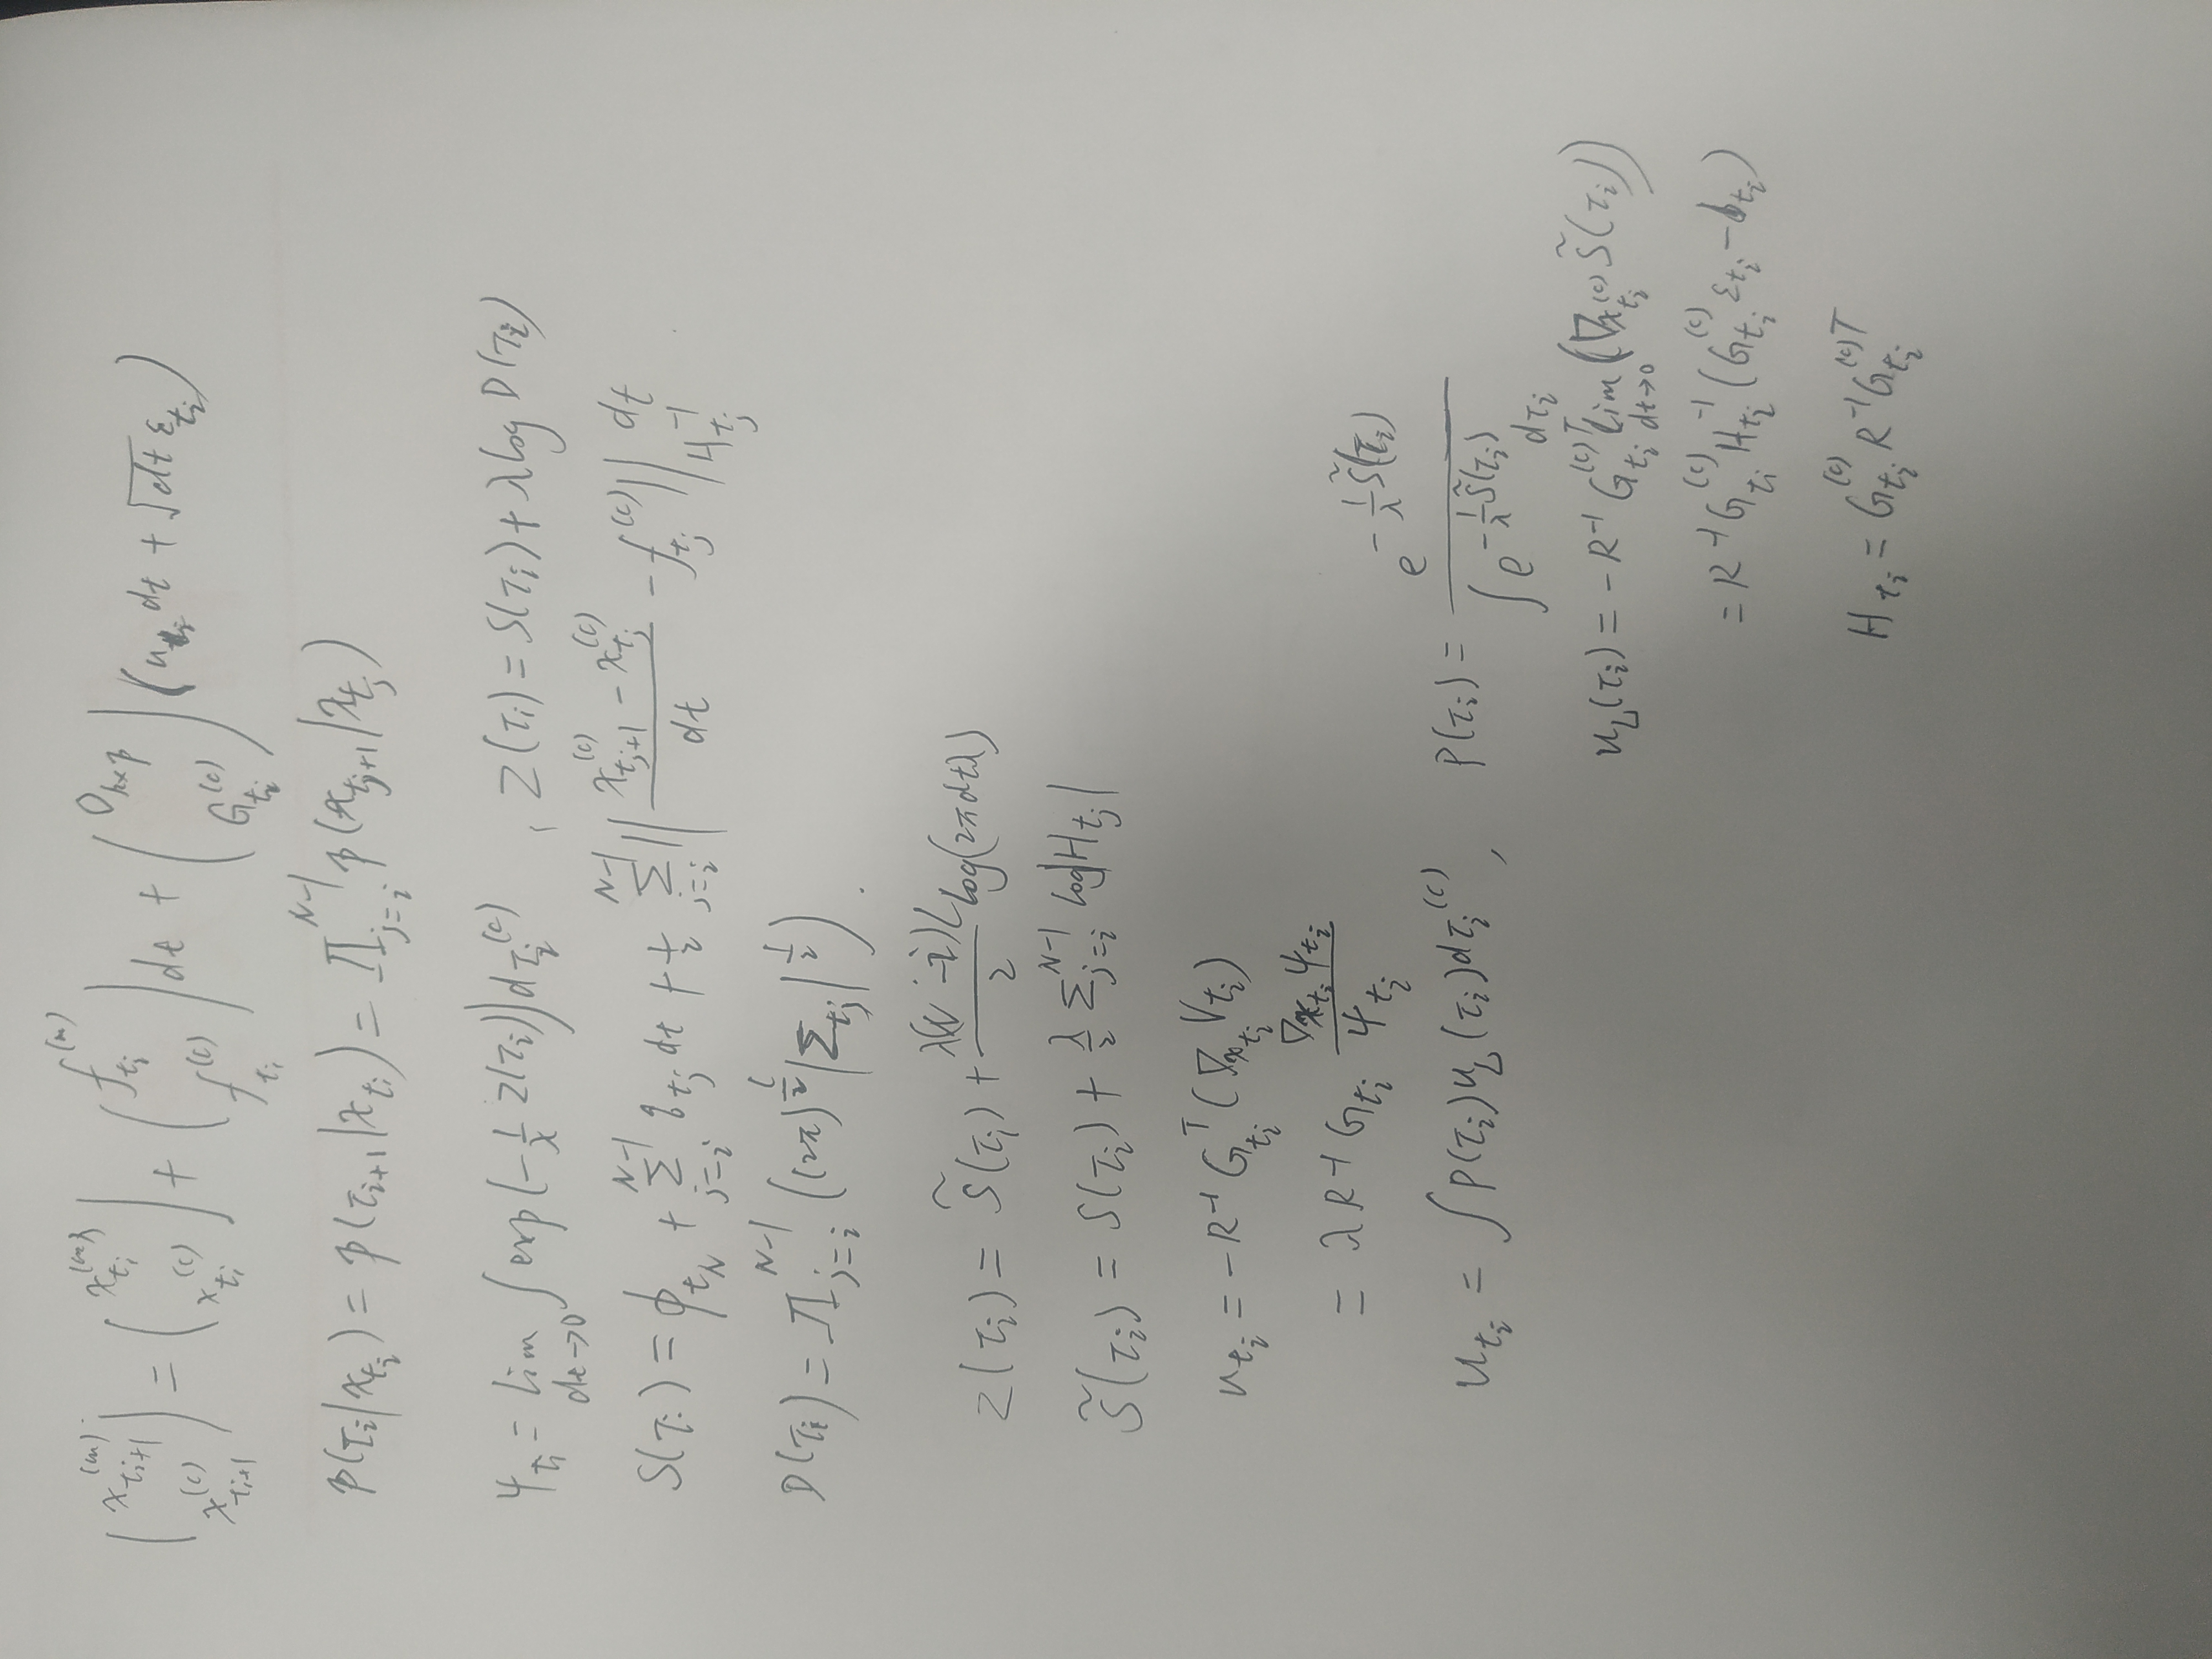 $\begin{pmatrix} x_{t_{i+1}}^{(m)} \\ x_{t_{i+1}}^{(c)} \end{pmatrix} = \begin{pmatrix} x_{t_i}^{(m)} \\ x_{t_i}^{(c)} \end{pmatrix} + \begin{pmatrix} f_{t_i}^{(m)} \\ f_{t_i}^{(c)} \end{pmatrix} dt + \begin{pmatrix} 0_{k \times p} \\ G_{t_i}^{(c)} \end{pmatrix} (u_{t_i} dt + \sqrt{dt} \varepsilon_{t_i})$
$p(\tau_i | x_{t_i}) = p(\tau_{i+1} | x_{t_i}) = \Pi_{j=i}^{N-1} p(x_{t_{j+1}} | x_{t_j})$
$\psi_{t_i} = \lim_{dt \to 0} \int \exp(-\frac{1}{\lambda} Z(\tau_i)) d\tau_i^{(c)} , Z(\tau_i) = S(\tau_i) + \lambda \log D(\tau_i)$
$S(\tau_i) = \phi_{t_N} + \sum_{j=i}^{N-1} q_{t_j} dt + \frac{1}{2} \sum_{j=i}^{N-1} || \frac{x_{t_{j+1}}^{(c)} - x_{t_j}^{(c)}}{dt} - f_{t_j}^{(c)} ||_{H_{t_j}^{-1}} dt$
$D(\tau_i) = \Pi_{j=i}^{N-1} ((2\pi)^{\frac{l}{2}} |\Sigma_{t_j}|^{\frac{1}{2}}) .$
$Z(\tau_i) = \tilde{S}(\tau_i) + \frac{\lambda (N-i) l}{2} \log(2\pi dt \lambda)$
$\tilde{S}(\tau_i) = S(\tau_i) + \frac{\lambda}{2} \Sigma_{j=i}^{N-1} \log |H_{t_j}|$
$u_{t_i} = -R^{-1} G_{t_i}^T (\nabla_{x_{t_i}} V_{t_i})$
$= \lambda R^{-1} G_{t_i} \frac{\nabla_{x_{t_i}} \psi_{t_i}}{\psi_{t_i}}$
$u_{t_i} = \int P(\tau_i) u_L(\tau_i) d\tau_i^{(c)} , P(\tau_i) = \frac{e^{-\frac{1}{\lambda} \tilde{S}(\tau_i)}}{\int e^{-\frac{1}{\lambda} \tilde{S}(\tau_i)} d\tau_i}$
$u_L(\tau_i) = -R^{-1} G_{t_i}^{(c)T} \lim_{dt \to 0} (\nabla_{x_{t_i}^{(c)}} \tilde{S}(\tau_i))$
$= R^{-1} G_{t_i}^{(c)} H_{t_i}^{-1} (G_{t_i}^{(c)} \varepsilon_{t_i} - b_{t_i})$
$H_{t_i} = G_{t_i}^{(c)} R^{-1} G_{t_i}^{(c)T}$